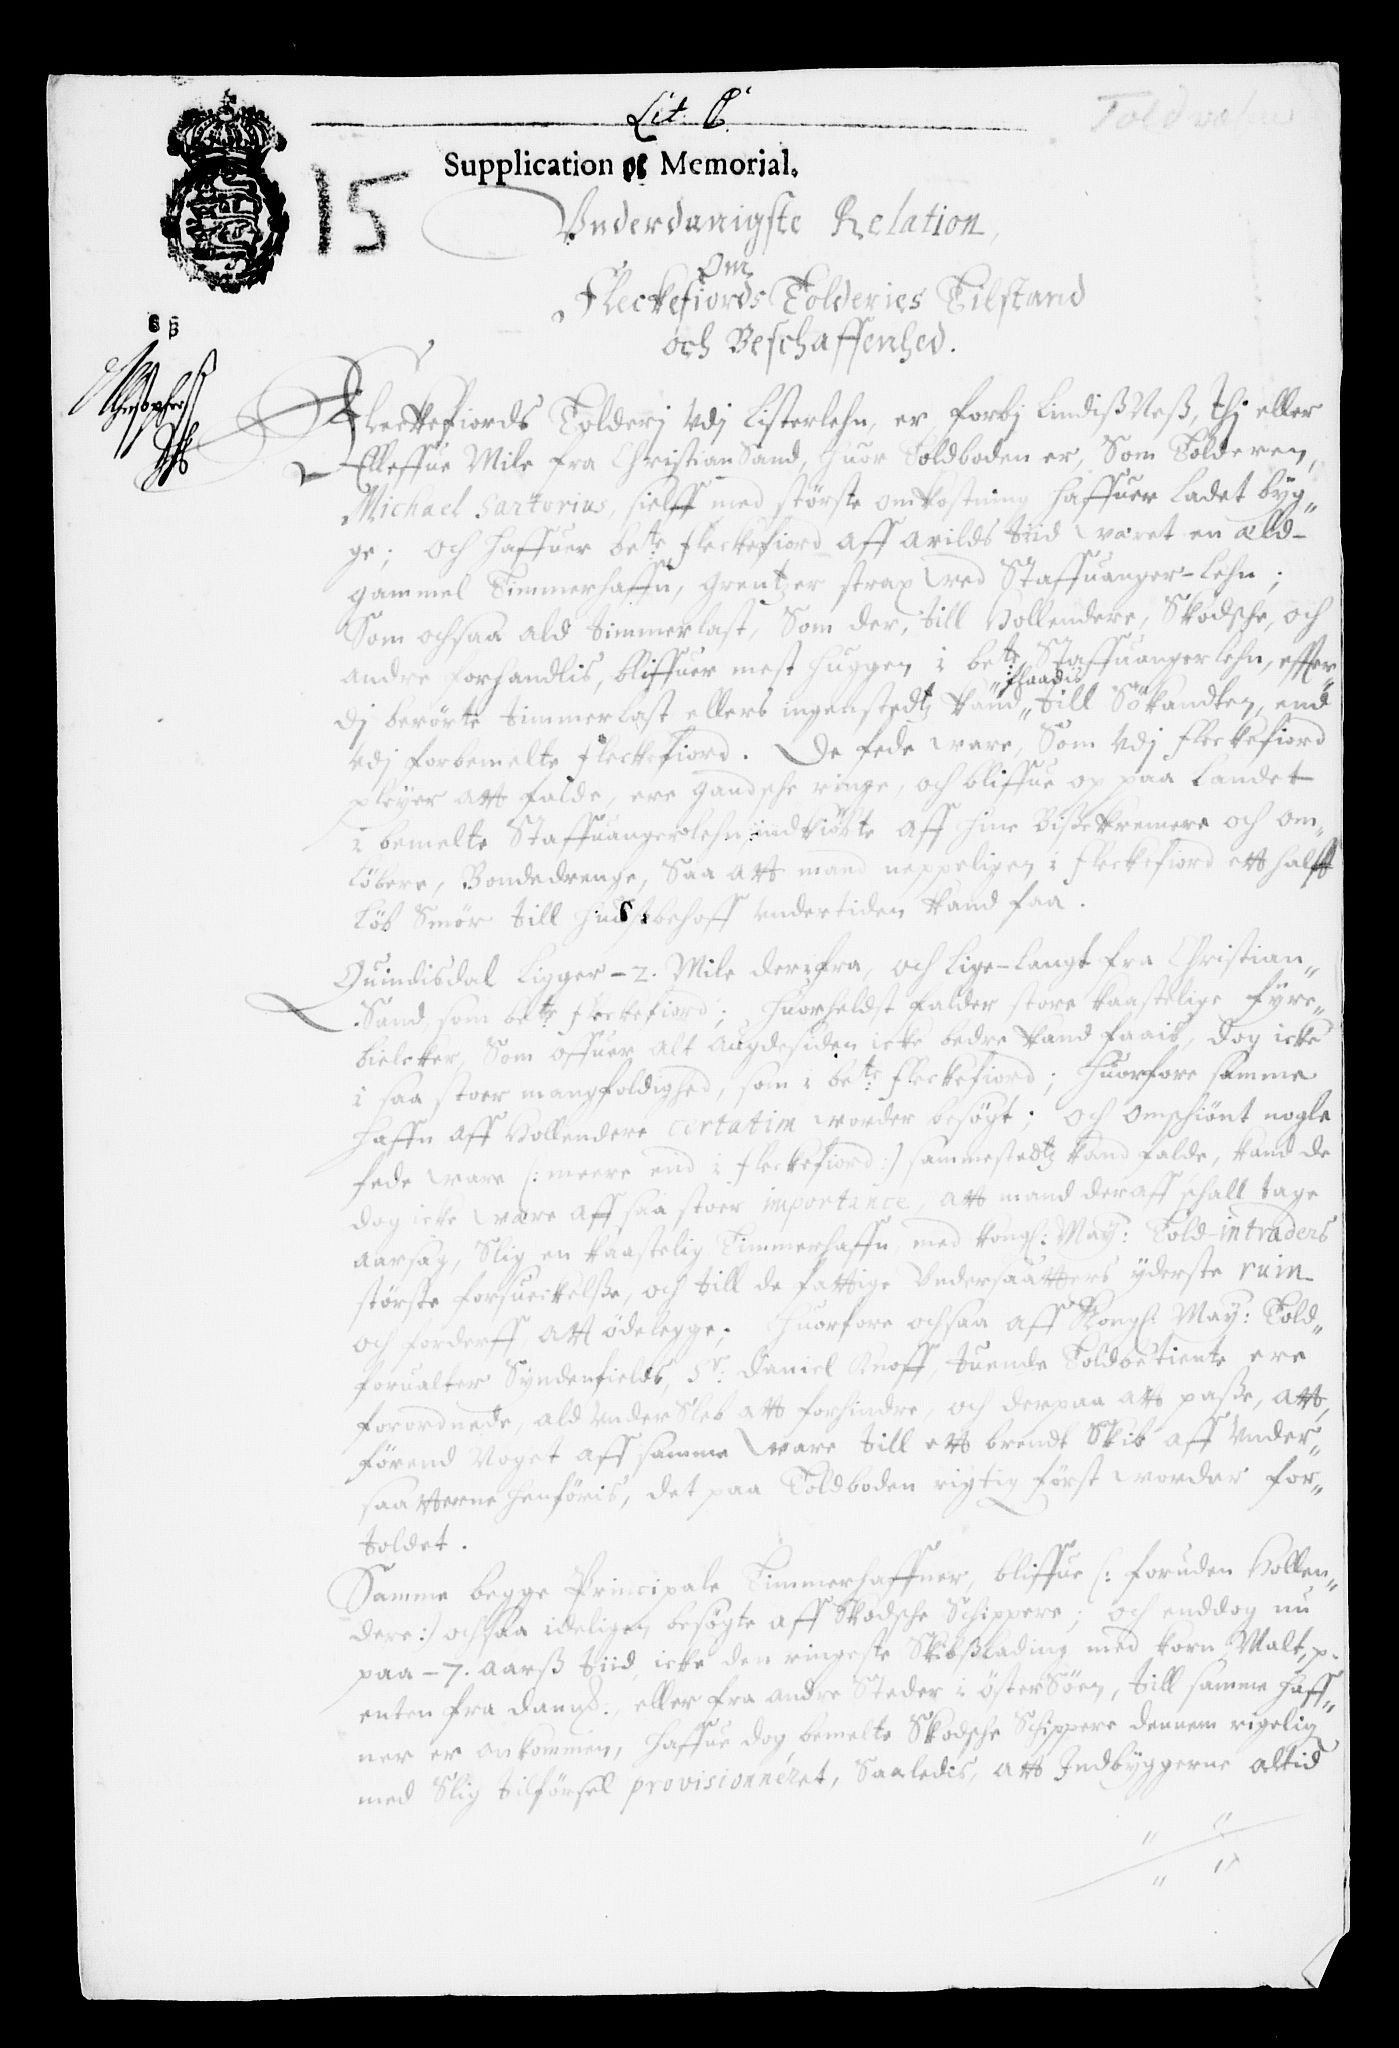 Lit. C.
Toldvæsen
Supplication og Memorial.
15
Vnderdanigste Relation,
Om
Fleckefiords Tolderies Tilstand
och Beschaffenhed.
6 β
Fleckefiords Tolderj vdj Listerlehn, er forbj Lindißneß, thj eller
Elleffue Mile fra ChristianSand, huor Toldboden er, Som Tolderen,
Michael Sartorius, sielff med störste omkostning haffuer ladet byg„
ge; och haffuer bete: Fleckefiord aff arilds tiid wæret en ald-
gammel Timmerhaffn, grentzer strax wed Staffuanger-Lehn;
Som ochsaa ald timmerlast, Som der, till Hollendere, Skodsche, och
andre forhandlis, bliffuer mest huggen i bete: Staffuangerlehn, effter„
dj berörte timmerlast ellers ingenstedtz kand„ flaadis till Sökandten, end
vdj forbemelte Fleckefiord. De fede ware, Som vdj Fleckefiord
pleyer att falde, ere gandsche ringe, och bliffue op paa Landet
i bemelte Staffuangerlehn indkiöbte aff hine Bißekremere och om„
löbere, Bondedrenge, Saa att mand neppeligen i Fleckefiord ett halfft
löb Smör till hußbehoff vndertiden kand faa.
Quindisdal Ligger - 2. Mile derfra, och Lige-langt fra Christian„
Sand, som bete Fleckefiord; huorheldst falder store kaastelige fyre„
bielcker, Som offuer alt Augdesiden icke bedre kand faais, dog icke
i saa stoer mangfoldighed, som i bete: Fleckefiord; huorfore samme
haffn aff Hollendere certatim worder besögt; och omschiönt nogle
fede ware (: meere end i Fleckefiord :) sammestedtz kand falde, kand de
dog icke være aff saa stoer importance, att mand deraff schall tage
aarsag, Slig en kaastelig Timmerhaffn, med kongl: May: Told-intraders
störste forsueckelße, och till de fattige Vndersaatters yderste ruin
och forderff att ödelegge. Huorfore ochsaa aff Kongl: May: Told„
forualter Syndenfields, Sr: Daniel Knoff, tuende Toldbetiente ere
forordnede, ald Vnder Sleb att forhindre, och derpaa att paße, att,
förend Noget aff samme ware till ett brendt Skib aff Vnder„
saatterne henföris, det paa Toldboden rigtig först worder for„
toldet.
Samme begge Principale Timmerhaffner, bliffue (: foruden Hollen„
dere :) ochsaa ideligen besögte aff Skodsche Schippere; och enddog nu
paa - 7. Aarß tiid, icke den ringeste Skibßlading med korn, Malt, p.
enten fra Danmk: eller fra andre Steder i ÖsterSöen, till samme haff„
ner er ankommen, haffue dog bemelte Skodsche Schippere dennem rigelig
med Slig tilförsel provisionnéret, Saaledis, att Indbyggerne altid